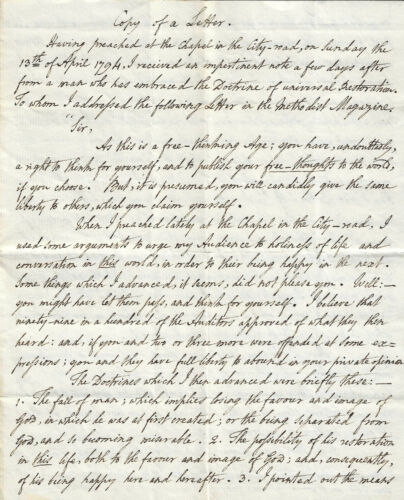 Copy of a Letter.
Having preached at the Chapel in the City-road, on Sunday the
13th of April 1794, I received an impertinent note a few days after
from a man who has embraced the Doctrine of universal Restoration.
To whom I addressed the following Letter in the Methodist Magazine.
"Sir,
As this is a free-thinking Age; you have, undoubtedly,
a right to think for yourself, and to publish your free-thoughts to the world,
if you chose. But, it is presumed, you will candidly give the same
liberty to others, which you claim yourself.
When I preached lately at the Chapel in the City-road, I
used some arguments to urge my Audience to holiness of life and
conversation in this world, in order to their being happy in the next.
Some things which I advanced, it seems, did not please you. Well:—
you might have let them pass, and think for yourself. I believe that
ninety-nine in a hundred of the Auditors approved of what they then
heard: and, if you and two or three more were offended at some ex-
pressions; you and they have full liberty to abound in your private opinion
The Doctrines which I then advanced were briefly these:—
1. The fall of man; which implies losing the favour and image of
God, in which he was at first created; or the being separated from
God, and so becoming miserable. 2. The possibility of his restoration
in this life, both to the favour and image of God; and, consequently,
of his being happy here and hereafter. 3. I pointed out the means